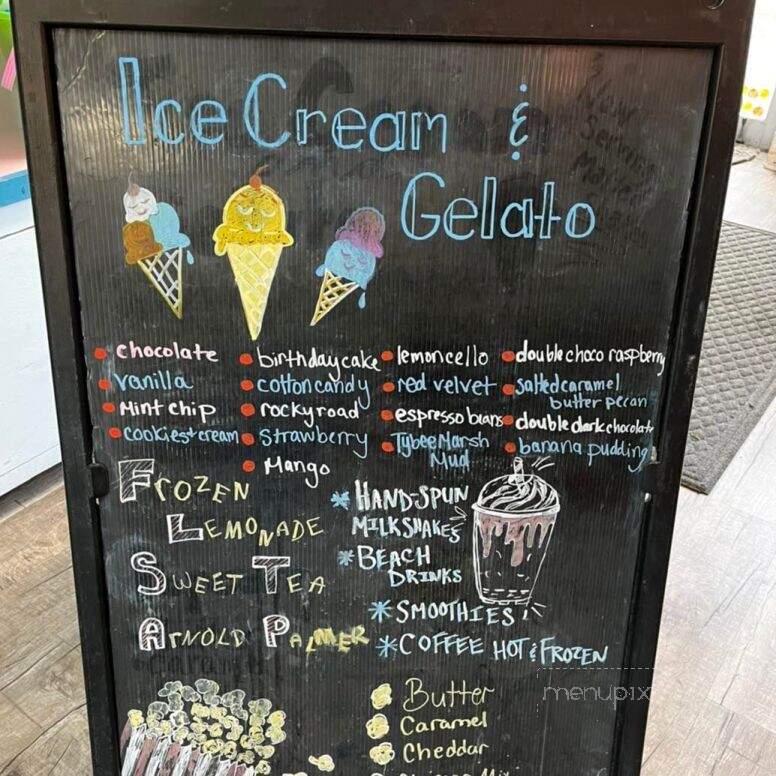 Ice Cream &
Gelato
chocolate
vanilla
Mint chip
cookies+cream
birthday cake
cotton candy
rocky road
Strawberry
Mango
lemoncello
red velvet
espresso beans
Tybee Marsh
Mud
double choco raspberry
salted caramel
butter pecan
double dark chocolate
banana pudding
FROZEN
LEMONADE
SWEET TEA
ARNOLD PALMER
* HAND-SPUN
MILKSHAKES
* BEACH
DRINKS
* SMOOTHIES
* COFFEE HOT & FROZEN
Butter
Caramel
Cheddar
menupix